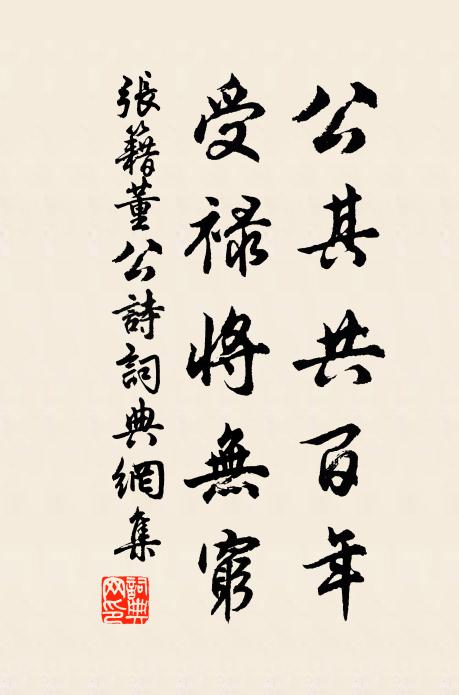 公其共百年
受祿將無窮
張籍董公詩詞典網集
詞典網印